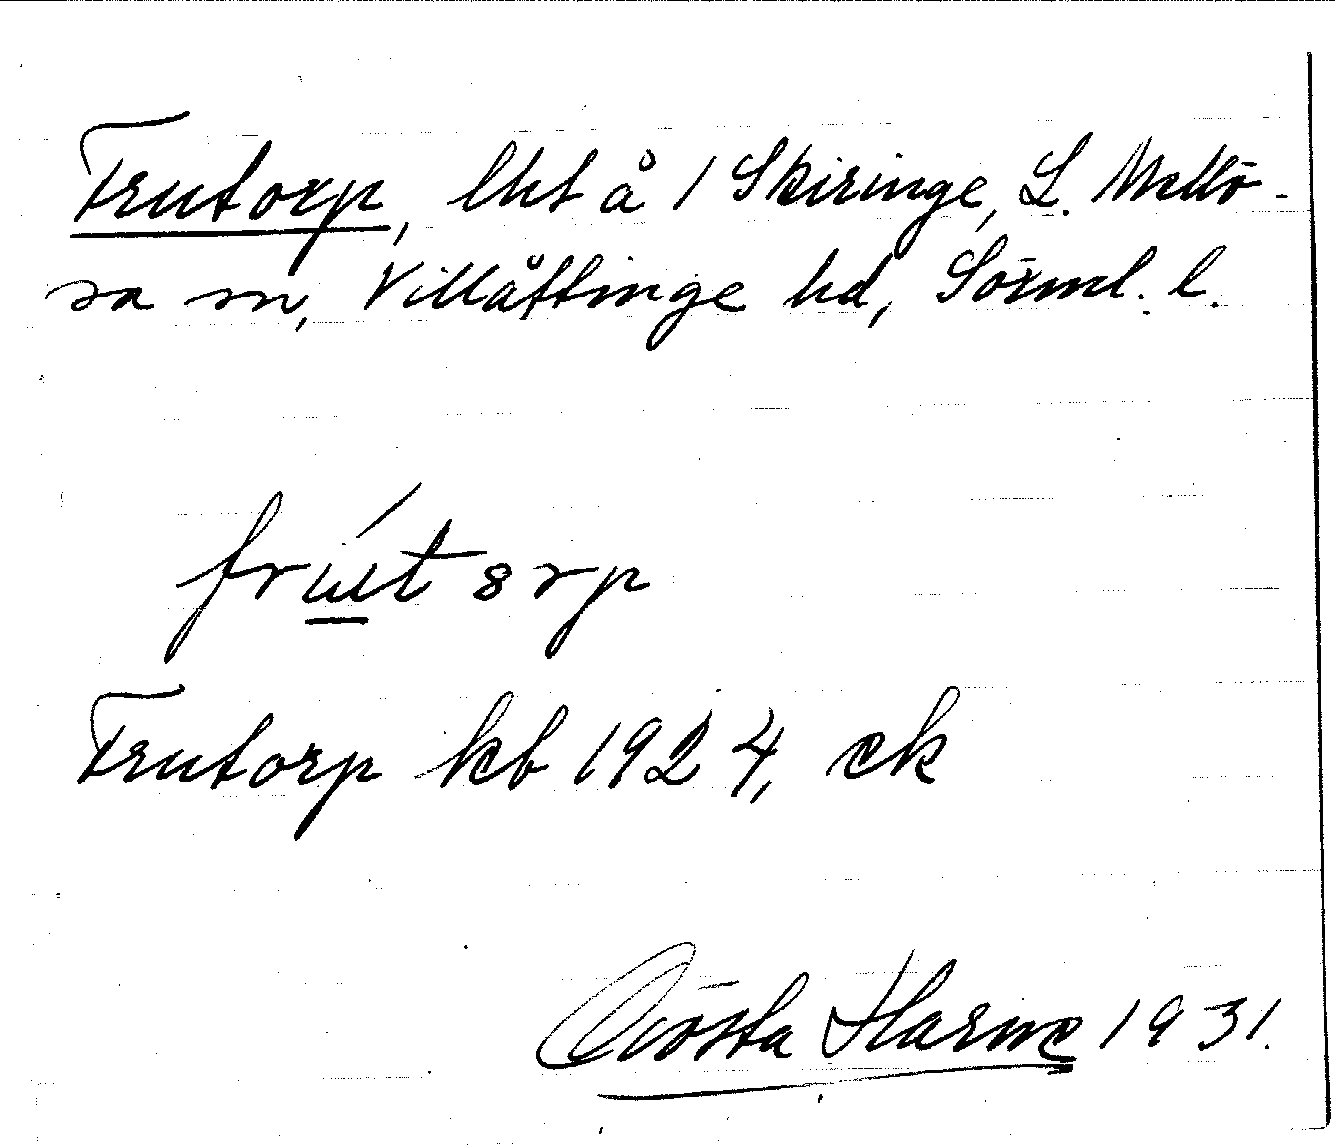 Frutorp, lht å 1 Skiringe, L. Mellö-
sa sn, Villåttinge hd, Sörml. l.
frút orp
Frutorp kb 1924, ek
Gösta Harme 1931.